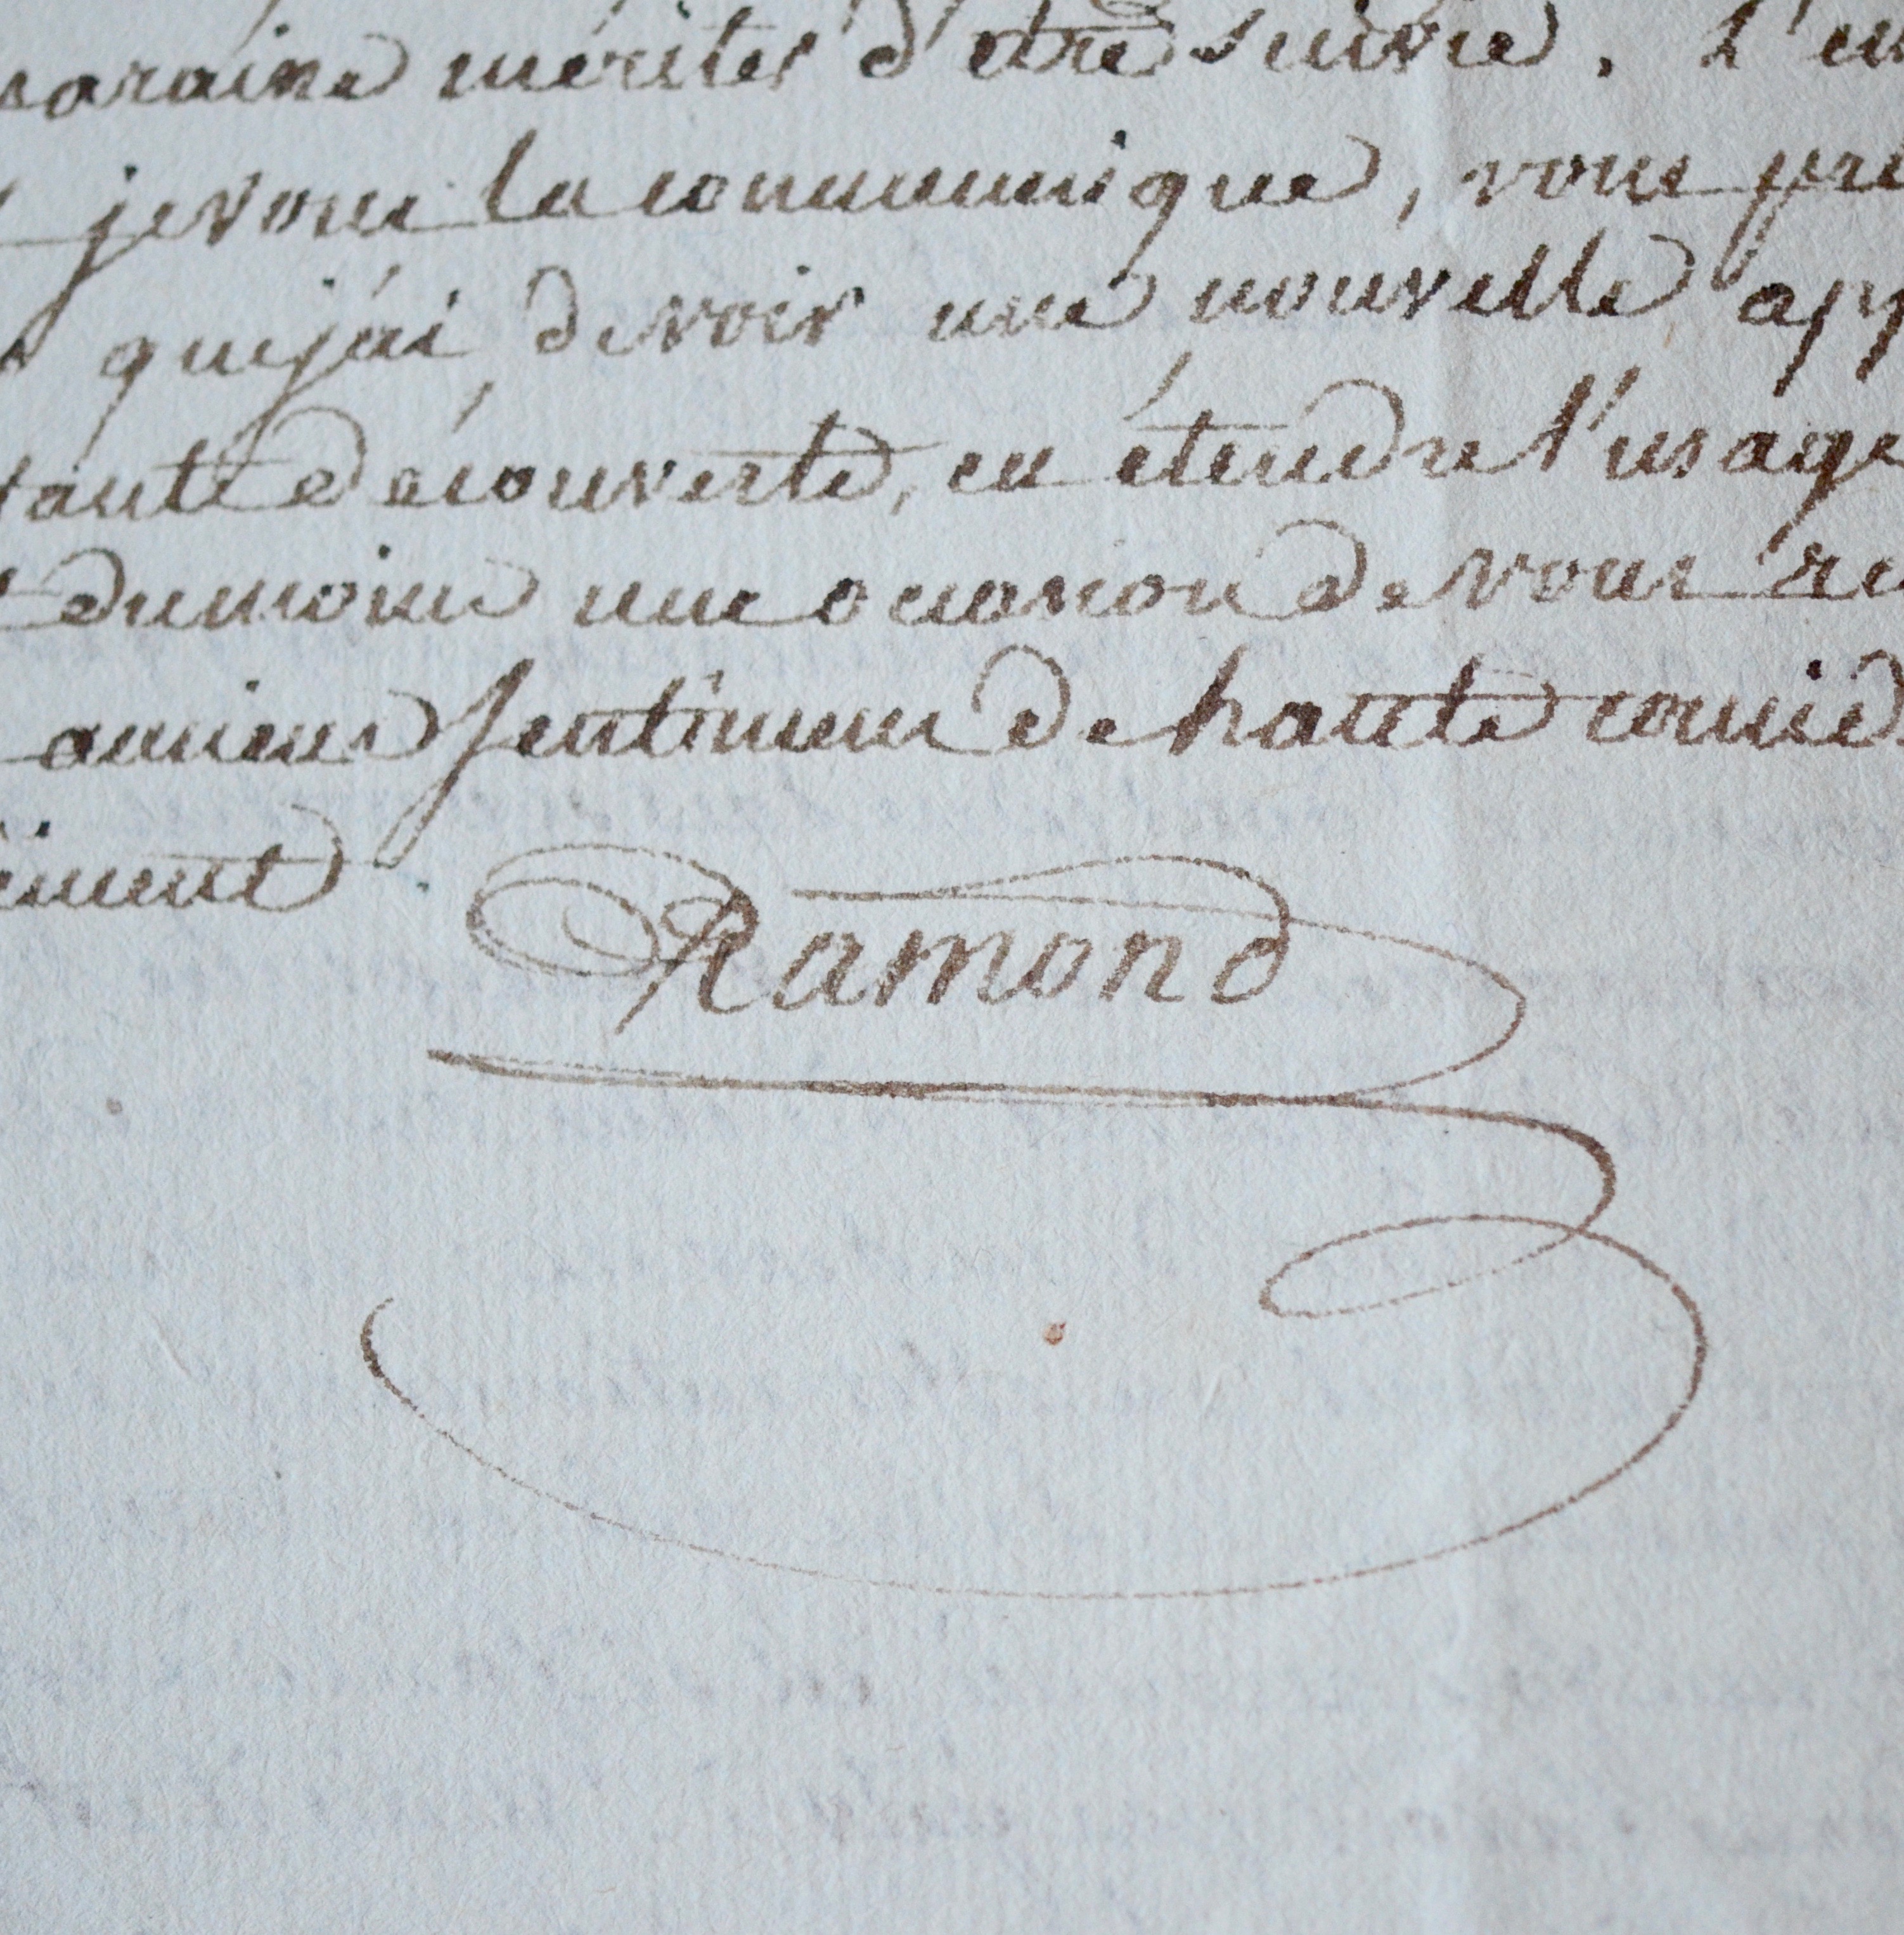 mériter d'etre suivie. L'en
je vous la communique, vous pri
que j'ai de voir une nouvelle app
tante découverte, en étendre l'usage
du moins une occasion de vous re
anciens sentimens de haute consid
ement.
Ramond